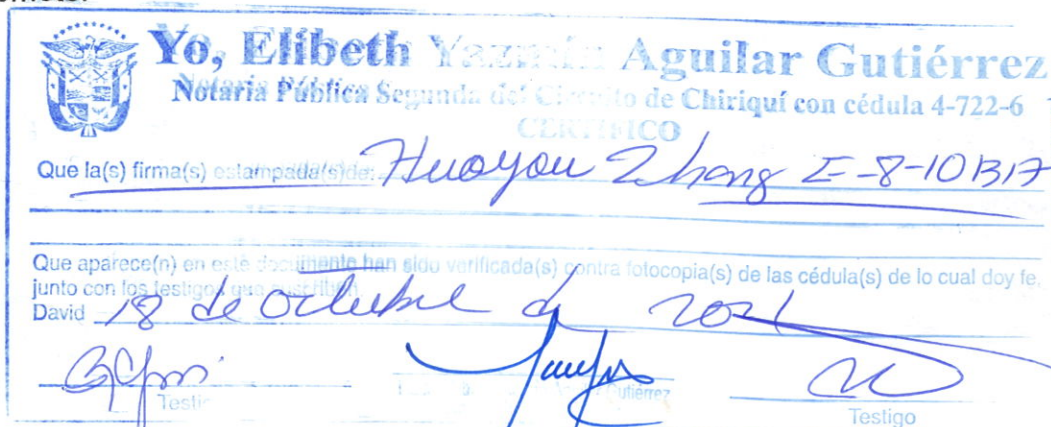 Yo, Elibeth Yazmín Aguilar Gutiérrez
Notaria Pública Segunda del Circuito de Chiriquí con cédula 4-722-6
CERTIFICO
Que la(s) firma(s) estampada(s) de: Huoyou Zhang E-8-101317
Que aparece(n) en este documento han sido verificada(s) contra fotocopia(s) de las cédula(s) de lo cual doy fe,
junto con los testigos que suscriben
David 18 de octubre de 2021
Gutiérrez
Testigo
Testigo